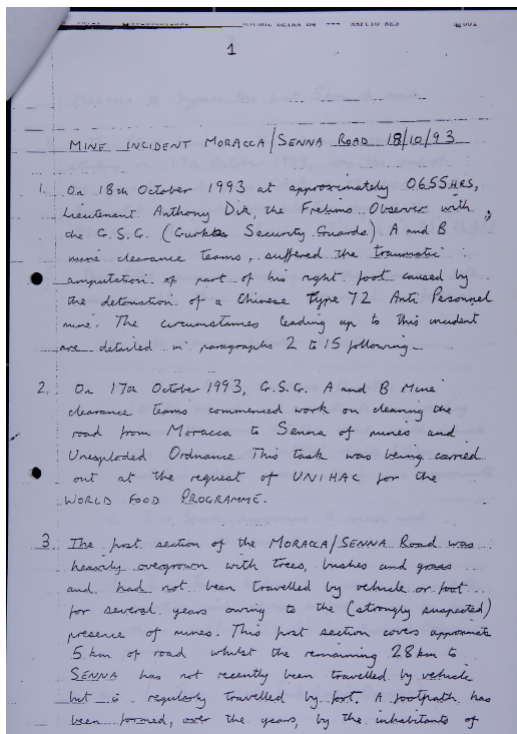 1
MINE INCIDENT MORACCA/SENNA ROAD 18/10/93
1. On 18th October 1993 at approximately 0655HRS,
Lieutenant Anthony Dik, the Frelimo Observer with
the G.S.G. (Gurkha Security Guards) A and B
mine clearance teams, suffered the traumatic
amputation of part of his right foot caused by
the detonation of a Chinese type 72 Anti Personnel
mine. The circumstances leading up to this incident
are detailed in paragraphs 2 to 15 following.
2. On 17th October 1993, G.S.G. A and B Mine
clearance teams commenced work on clearing the
road from Moracca to Senna of mines and
Unexploded Ordnance. This task was being carried
out at the request of UNIHAC for the
WORLD FOOD PROGRAMME.
3. The first section of the MORACCA/SENNA Road was
heavily overgrown with trees, bushes and grass
and had not been travelled by vehicle or foot
for several years owing to the (strongly suspected)
presence of mines. This first section covers approximate
5 km of road whilst the remaining 28 km to
SENNA has not recently been travelled by vehicle
but is regularly travelled by foot. A footpath has
been formed, over the years, by the inhabitants of